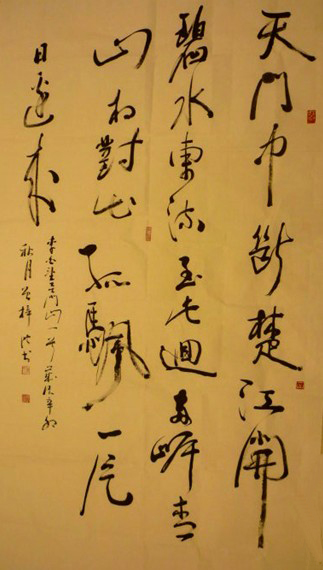 天門中斷楚江開
碧水東流至此迴兩岸青
山相對出孤颿一片
日邊來
李白望天門山一首歲次辛卯
秋月 書